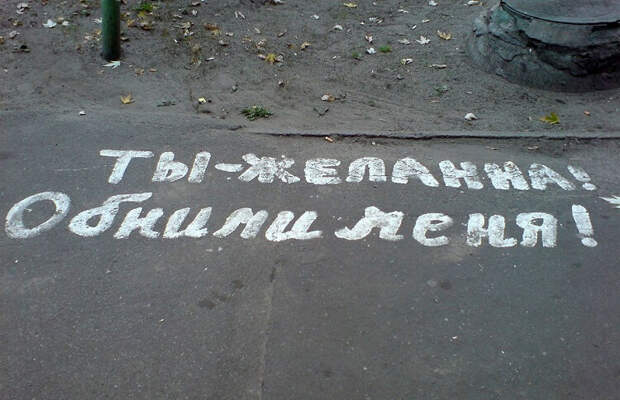 ТЫ-ЖЕЛАННА!
Обними меня!